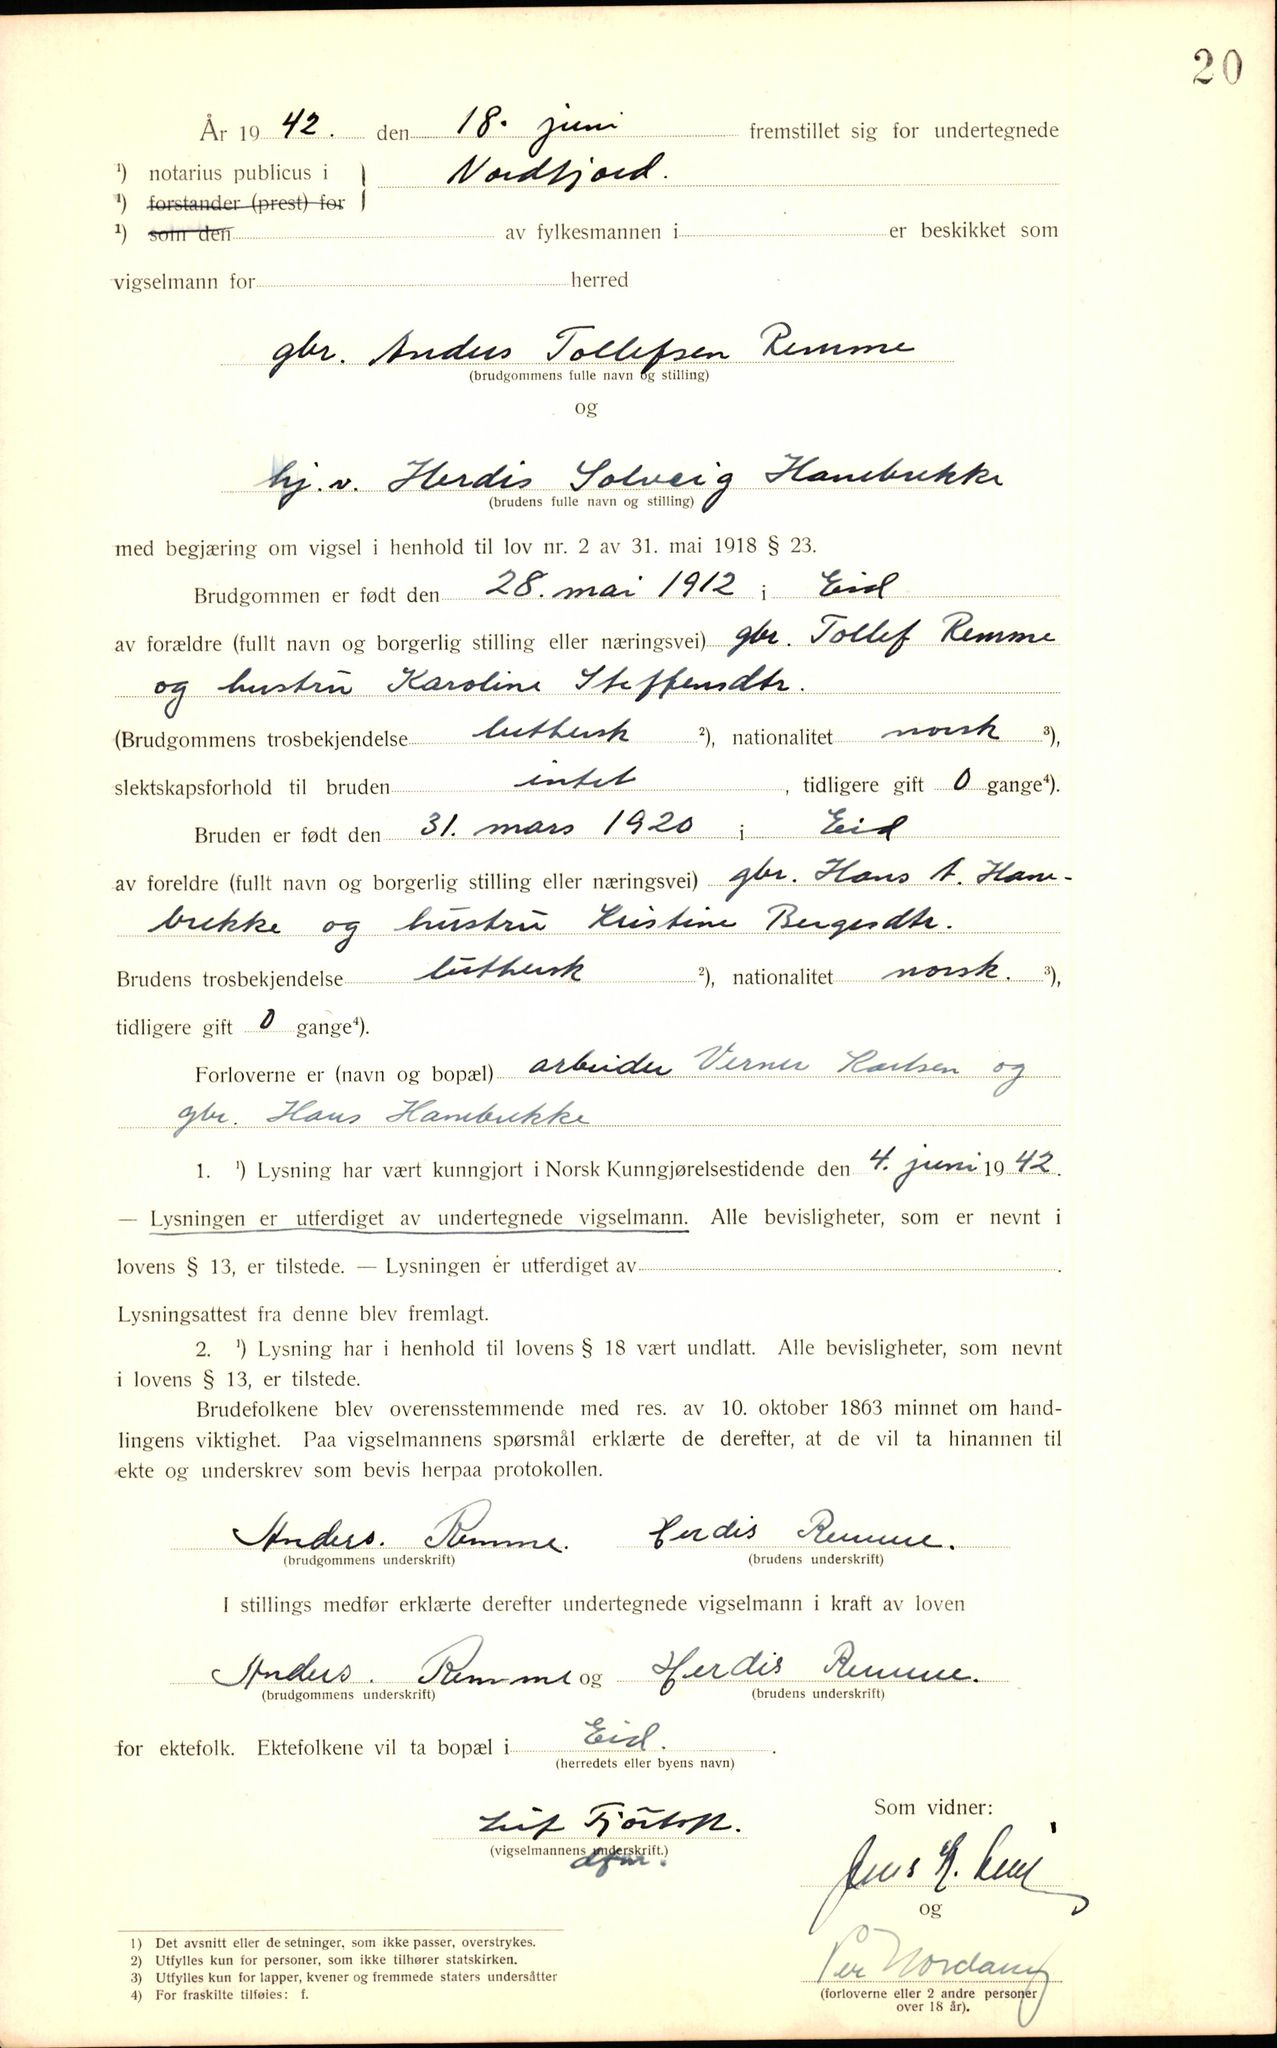 20
År 19 42. den 18. juni fremstillet sig for undertegnede
¹) notarius publicus i Nordfjord.
¹) forstander (prest) for
¹) som den av fylkesmannen i er beskikket som
vigselmann for herred
gbr. Anders Tollefsen Remme
(brudgommens fulle navn og stilling)
og
hj. v. Herdis Solveig Hanebrekke
(brudens fulle navn og stilling)
med begjæring om vigsel i henhold til lov nr. 2 av 31. mai 1918 § 23.
Brudgommen er født den 28. mai 1912 i Eid
av forældre (fullt navn og borgerlig stilling eller næringsvei) gbr. Tollef Remme
og hustru Karoline Steffensdtr.
(Brudgommens trosbekjendelse luthersk ²), nationalitet norsk ³),
slektskapsforhold til bruden intet , tidligere gift 0 gange⁴).
Bruden er født den 31. mars 1920 i Eid
av foreldre (fullt navn og borgerlig stilling eller næringsvei) gbr. Hans A. Hane-
brekke og hustru Kristine Bergesdtr.
Brudens trosbekjendelse luthersk ²), nationalitet norsk. ³),
tidligere gift 0 gange⁴).
Forloverne er (navn og bopæl) arbeider Verner Karlsen og
gbr. Hans Hanebrekke
1. ¹) Lysning har vært kunngjort i Norsk Kunngjørelsestidende den 4. juni 19 42.
— Lysningen er utferdiget av undertegnede vigselmann. Alle bevisligheter, som er nevnt i
lovens § 13, er tilstede. — Lysningen er utferdiget av .
Lysningsattest fra denne blev fremlagt.
2. ¹) Lysning har i henhold til lovens § 18 vært undlatt. Alle bevisligheter, som nevnt
i lovens § 13, er tilstede.
Brudefolkene blev overensstemmende med res. av 10. oktober 1863 minnet om hand-
lingens viktighet. Paa vigselmannens spørsmål erklærte de derefter, at de vil ta hinannen til
ekte og underskrev som bevis herpaa protokollen.
Anders. Remme. Herdis Remme.
(brudgommens underskrift) (brudens underskrift)
I stillings medfør erklærte derefter undertegnede vigselmann i kraft av loven
Anders. Remme og Herdis Remme.
(brudgommens underskrift) (brudens underskrift)
for ektefolk. Ektefolkene vil ta bopæl i Eid. .
(herredets eller byens navn)
Som vidner:
Leif Fjørtoft.
(vigselmannens underskrift.)
dfm.
Jens E.
og
Per
(forloverne eller 2 andre personer
over 18 år).
1) Det avsnitt eller de setninger, som ikke passer, overstrykes.
2) Utfylles kun for personer, som ikke tilhører statskirken.
3) Utfylles kun for lapper, kvener og fremmede staters undersåtter
4) For fraskilte tilføies: f.